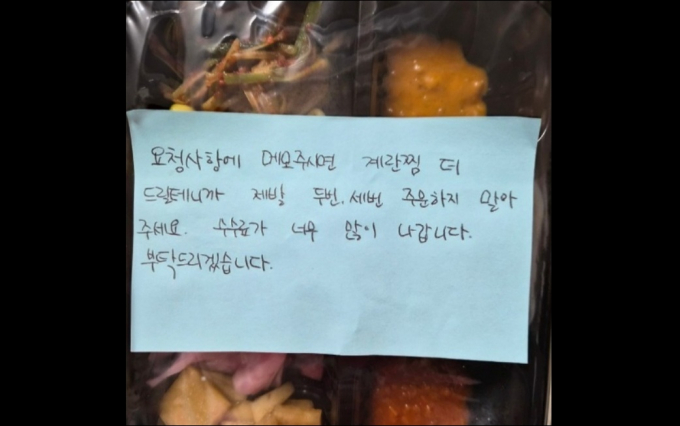 요청사항에 메모주시면 계란찜 더
드릴테니까 제발 두번, 세번 주문하지 말아
주세요. 수수료가 너무 많이 나갑니다.
부탁드리겠습니다.